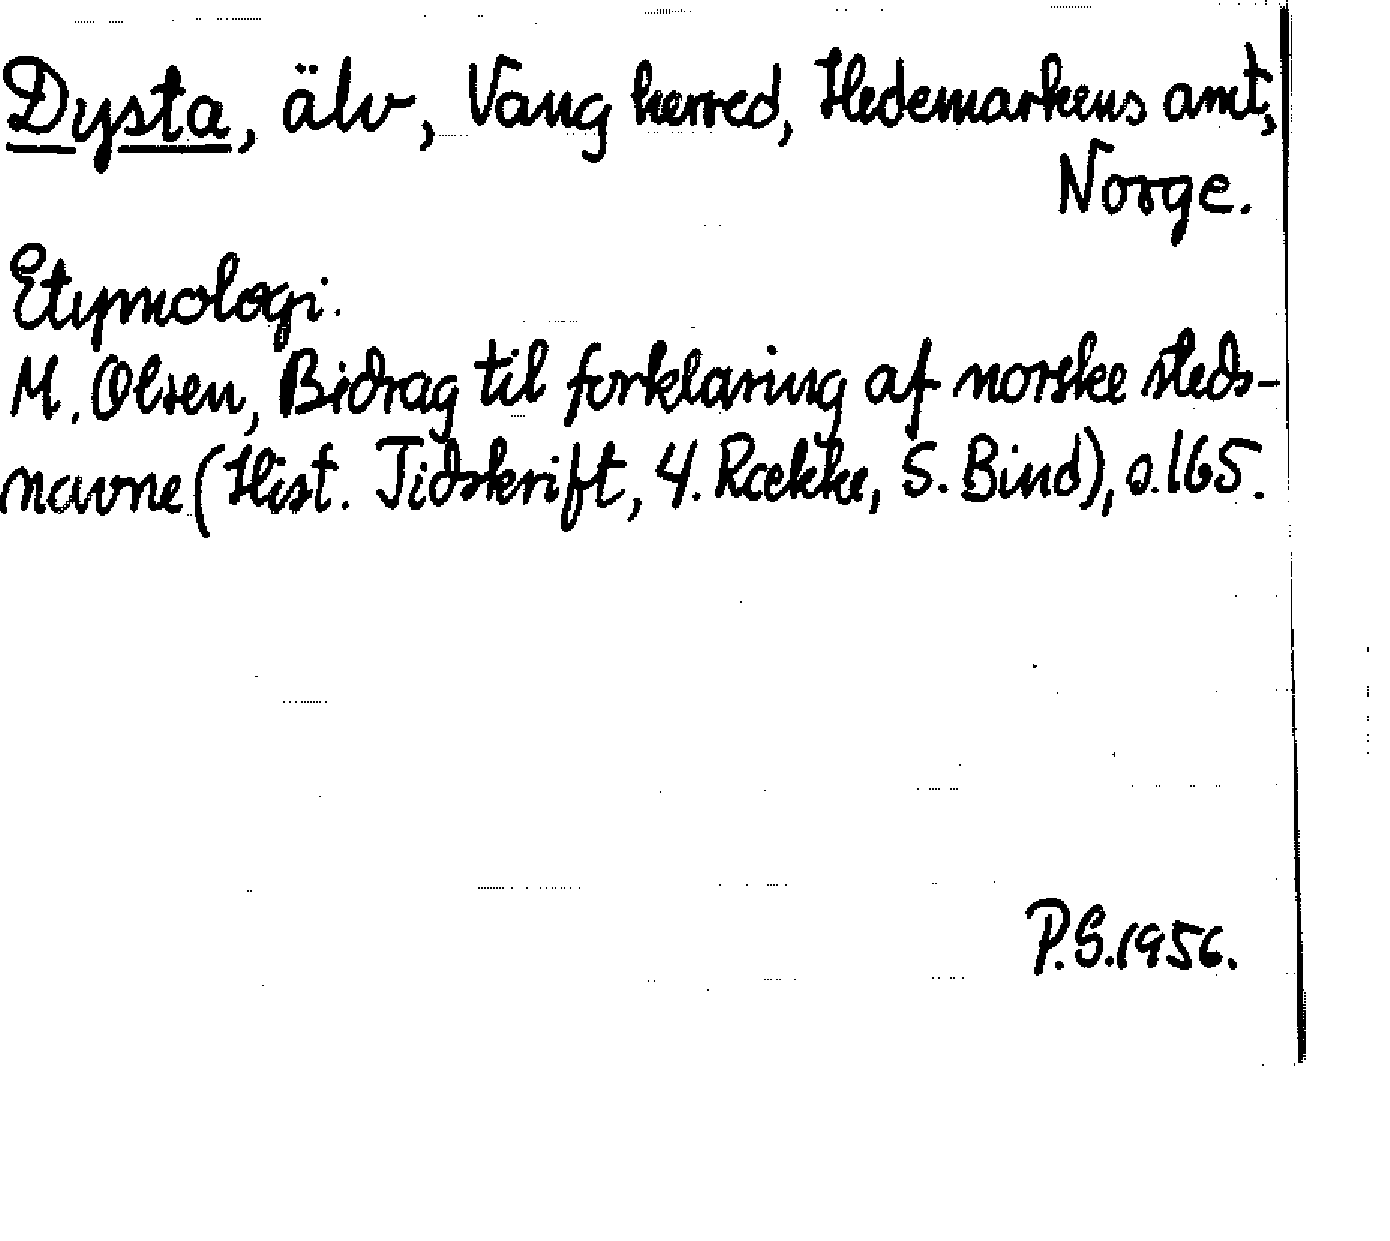 Dysta, älv, Vang herred, Hedemarkens amt,
Norge.
Etymologi.
M. Olsen, Bidrag til forklaring af norske steds-
navne (Hist. Tidskrift, 4. Række, 5. Bind), s. 165.
P.S. 1956.